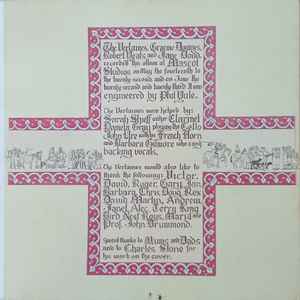 The Verlaines, Graeme Downes,
Robert Yeats and Jane Dodd,
recorded this album at Mascot
Studios on May the fourteenth to
the twenty second and on June the
twenty second and twenty third. It was
engineered by Phil Yule.
The Verlaines were helped by:
Sarah playing Clarinet
Pamela Gray playing the Cello
John Ure on the French Horn
and Barbara Gilmore who sang
backing vocals.
The Verlaines would also like to
thank the following: Victor,
David, Roger, Gary, Jon,
Barbara, Chris, Doug, Rex,
David, Martin, Andrew,
Janet, Alec, Terry, King,
Bird Nest Roys, Maria and
Prof. John Drummond.
Special thanks to Mums and Dads
and to Charles Stone for
his work on the cover.